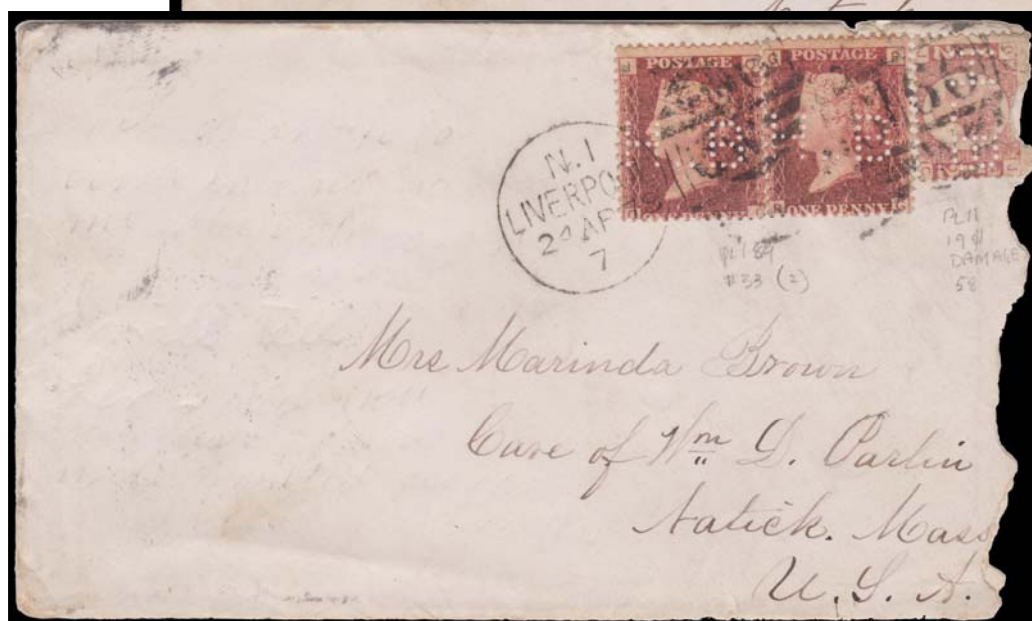 Natick
POSTAGE
POSTAGE
ONE PENNY
N.1
LIVERPO
24 AP 7
7
PL 189
#33 (2)
PL 11
DAMAGE
58
Mrs Marinda Brown
Care of Wm D. Parlin
Natick. Mass
U. S. A.